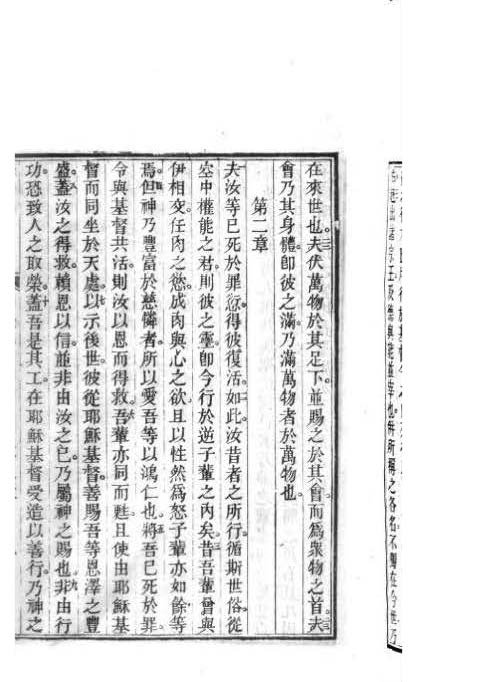 在來世也夫伏萬物於其足下並賜之於其會而爲衆物之首夫
會乃其身體卽彼之滿乃滿萬物者於萬物也
第二章
夫汝等已死於罪愆得彼復活如此汝昔者之所行循斯世俗從
空中權能之君則彼之靈卽今行於逆子輩之內矣昔吾輩曾與
伊相交任肉之慾成肉與心之欲且以性然爲怒子輩亦如餘等
焉但神乃豐富於慈憐者所以愛吾等以鴻仁也將吾已死於罪
令與基督共活則汝以恩而得救吾輩亦同而甦且使由耶穌基
督而同坐於天處以示後世彼從耶穌基督善賜吾等恩澤之豐
盛蓋汝之得救賴恩以信並非由汝之已乃屬神之賜也非由行
功恐致人之取榮蓋吾是其工在耶穌基督受造以善行乃神之
宰也並所稱之各名不獨在今世乃